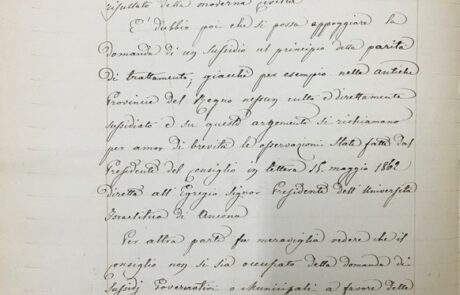 risultato della moderna civiltà
E' dubbio poi che si possa appoggiare la
domanda di un sussidio al principio della parità
di trattamento, giacchè per esempio nelle antiche
Provincie del Regno nessun culto è direttamente
sussidiato e su questo argomento si richiamano
per amor di brevità le osservazioni state fatte dal
Presidente del Consiglio in lettera 15 maggio 1862
diretta all'Egregio Signor Presidente dell'Università
Israelitica di Ancona
Per altra parte fa meraviglia vedere che il
consiglio non si sia occupato della domanda di
Sussidj Governativi o Municipali a favore delle